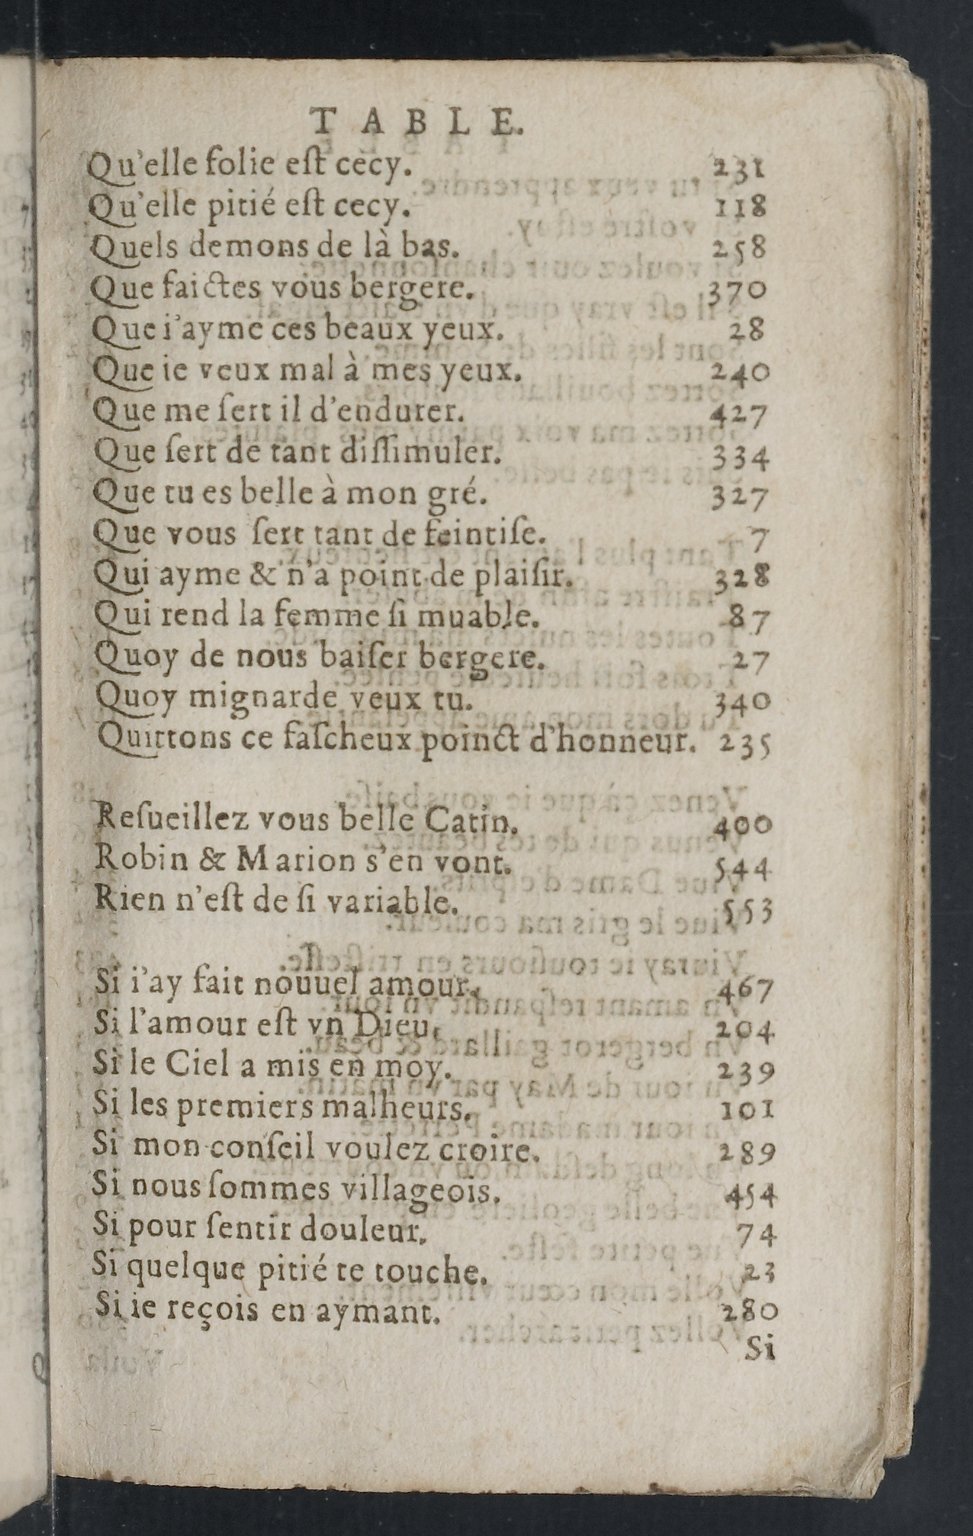 TABLE.
Qu'elle folie eſt cecy. 231
Qu'elle pitié eſt cecy. 118
Quels demons de là bas. 258
Que faictes vous bergere. 370
Que i'ayme ces beaux yeux. 28
Que ie veux mal à mes yeux. 240
Que me ſert il d'endurer. 427
Que ſert de tant diſſimuler. 334
Que tu es belle à mon gré. 327
Que vous ſert tant de feintiſe. 7
Qui ayme & n'a point de plaiſir. 328
Qui rend la femme ſi muable. 87
Quoy de nous baiſer bergere. 27
Quoy mignarde veux tu. 340
Quittons ce faſcheux poinct d'honneur. 235
Reſueillez vous belle Catin. 400
Robin & Marion s'en vont. 544
Rien n'eſt de ſi variable. 553
Si i'ay fait nouuel amour. 467
Si l'amour eſt vn Dieu. 204
Si le Ciel a mis en moy. 239
Si les premiers malheurs. 101
Si mon conſeil voulez croire. 289
Si nous ſommes villageois. 454
Si pour ſentir douleur. 74
Si quelque pitié te touche. 23
Si ie reçois en aymant. 280
Si